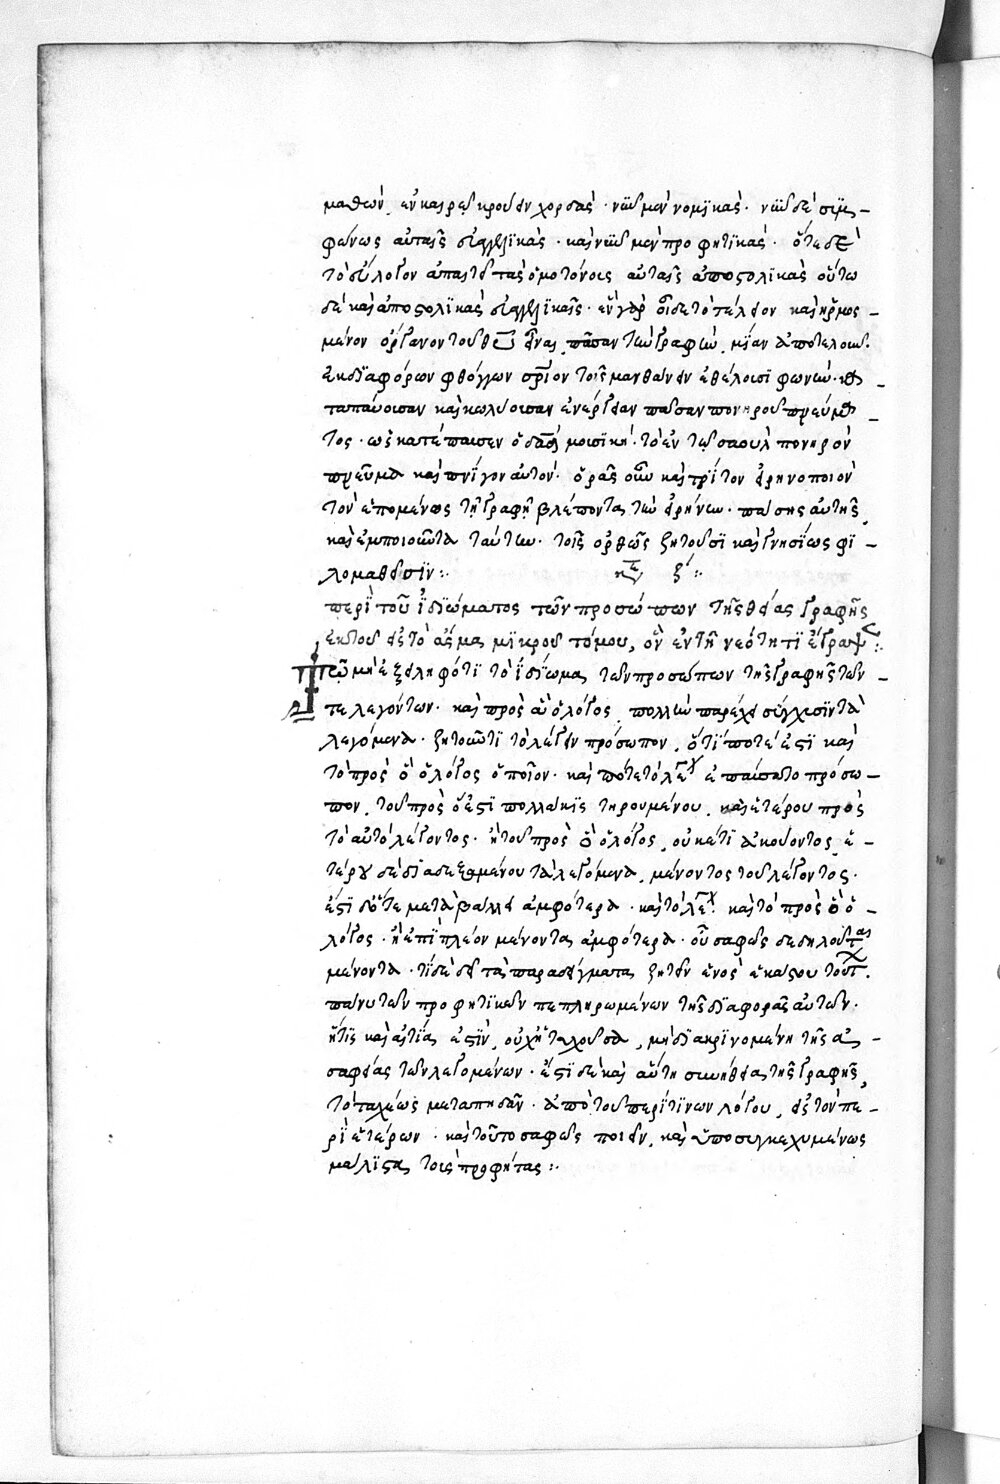 μαθὼν ἐν καιρῷ κρούειν χορδὰς· νῦν μὲν νομϊκὰς· νῦν δὲ συμ-
φώνως αὐταῖς εὐαγγελϊκὰς· καὶ νῦν μὲν προφητϊκὰς· ὅτε δὲ
τὸ εὔλογον ἀπαιτεῖ τὰς ὁμοτόνους αὐταῖς ἀποστολϊκὰς οὕτω
δὲ καὶ ἀποστολϊκὰς εὐαγγελϊκαῖς· ἓν γὰρ οἶδε τὸ τέλειον καὶ ἡρμοσ-
μένον ὄργανον τοῦ θεοῦ εἶναι πᾶσαν τὴν γραφὴν, μίαν ἀποτελοῦν
ἐκ διαφόρων φθόγγων σωτήριον τοῖς μανθάνειν ἐθέλουσι φωνήν· κα-
ταπαύουσαν καὶ κωλύουσαν ἐνέργειαν πᾶσαν πονηροῦ πνεύμα-
τος· ὡς κατέπαυσεν ὁ δαδ μουσικὴ· τὸ ἐν τῷ σαοὺλ πονηρὸν
πνεῦμα καὶ πνίγον αὐτὸν· ὁρᾷς οὖν καὶ τρίτον εἰρηνοποιὸν
τὸν ἑπομένως τῇ γραφῇ βλέποντα τὴν εἰρήνην· πάσης αὐτῆς,
καὶ ἐμποιοῦντα ταύτην· τοῖς ὀρθῶς ζητοῦσϊ καὶ γνησίως φϊ-
λομαθοῦσϊν: κε ζ:
περὶ τοῦ ἰδϊώματος τῶν προσώπων τῆς θείας γραφῆς
ἐκ τοῦ εἰς τὸ ἆσμα μϊκροῦ τόμου, ὃν ἐν τῇ νεότητϊ ἔγραψεν:
Τῷ μὴ ἐξειληφότϊ τὸ ἰδίωμα τῶν προσώπων τῆς γραφῆς τῶν
τε λεγόντων· καὶ πρὸς ἃ ὁ λόγος, πολλὴν παρέχει σύγχυσϊν τὰ
λεγόμενα· ζητοῦντϊ τὸ λέγειν πρόσωπον, ὅτϊ ποτέ ἐστϊ καὶ
τὸ πρὸς ὃ ὁ λόγος ὁποῖον· καὶ πότε τὸ λέγον ἐπαύσατο πρόσω-
πον, τοῦ πρὸς ὅ ἐστϊ πολλάκϊς τηρουμένου, καὶ ἑτέρου πρὸς
τὸ αὐτὸ λέγοντος· ἢ τοῦ πρὸς ὃ ὁ λόγος, οὐκέτϊ ἀκούοντος, ἑ-
τέρου δὲ διαδεξαμένου τὰ λεγόμενα, μένοντος τοῦ λέγοντος·
ἔστϊ δ' ὅτε μεταβάλλει ἀμφότερα· καὶ τὸ λέγον καὶ τὸ πρὸς ὃ ὁ
λόγος· ἢ ἐπὶ πλέον μένοντα ἀμφότερα· οὐ σαφῶς δεδήλωται
μένοντα· τί δὲ δεῖ τὰ παραδείγματα ζητεῖν ἑνὸς ἑκάστου τούτων·
πάνυ τῶν προφητϊκῶν πεπληρωμένων τῆς διαφορᾶς αὐτῶν·
ἥτϊς καὶ αἰτία ἐστϊν, οὐχ ἡ τυχοῦσα, μὴ διακρϊνομένη τῆς ἀ-
σαφείας τῶν λεγομένων· ἔστϊ δὲ καὶ αὕτη συνήθεια τῆς γραφῆς,
τὸ ταχέως μεταπηδᾶν· ἀπὸ τοῦ περὶ τϊνων λόγου, εἰς τὸν πε-
ρὶ ἑτέρων· καὶ τοῦτο ἀσαφῶς ποιεῖν, καὶ ὑποσυγκεχυμένως
μάλϊστα τοὺς προφήτας: